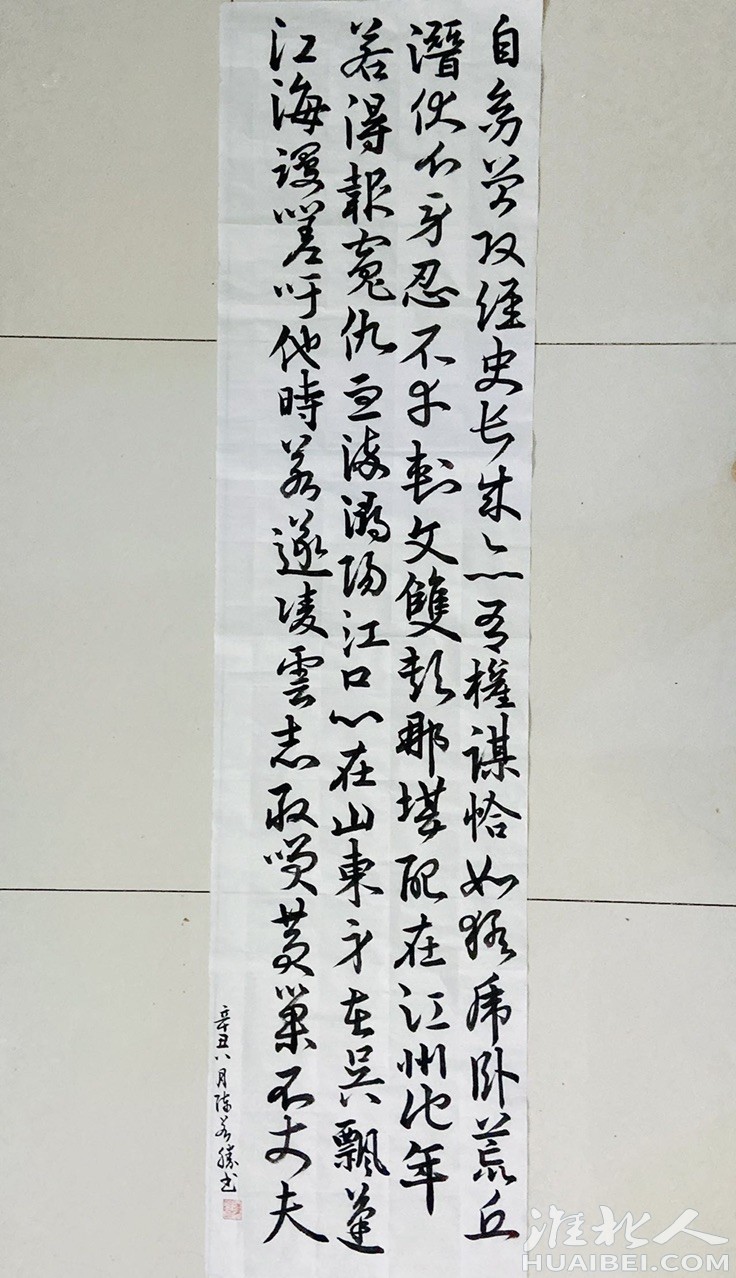 自幼曾攻经史长成亦有權謀恰如猛虎卧荒丘
潛伏爪牙忍不幸刺文雙頰那堪配在江州他年
若得報冤仇血染潯陽江口心在山東身在吴飄蓬
江海謾嗟吁他時若遂凌雲志敢笑黄巢不丈夫
辛丑八月陈若勝书
淮北人
HUAIBEI.COM